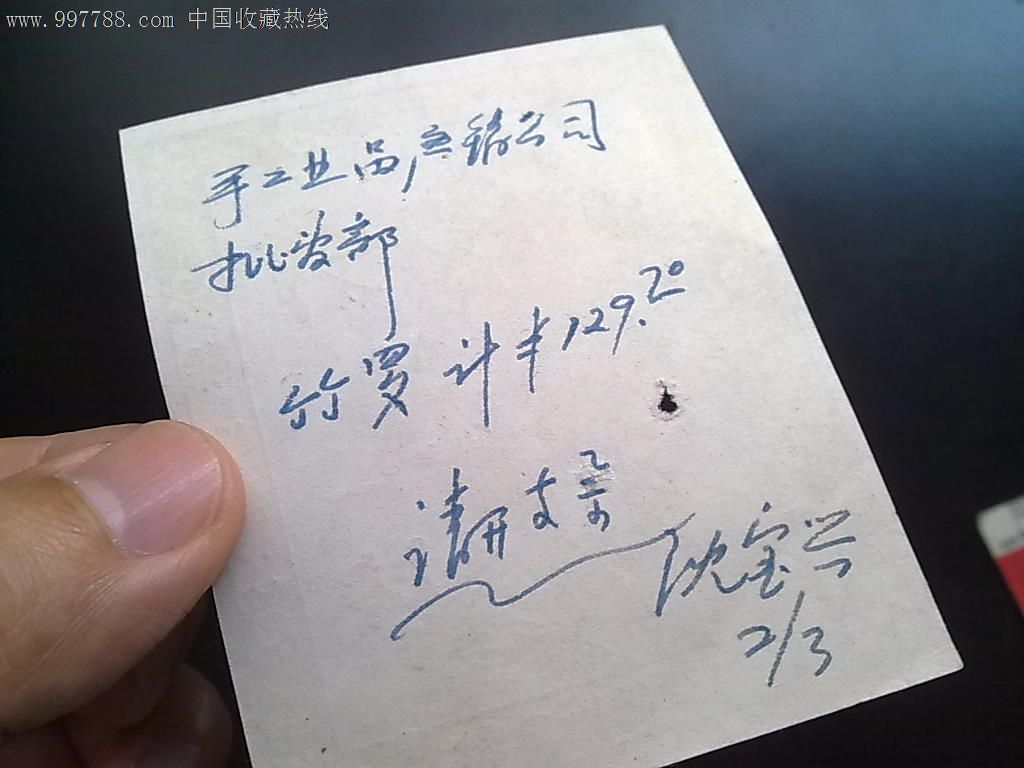 www.997788.com 中国收藏热线
手工业品产销公司
批发部
竹罗 计半129.70
请开支票
沈宝兴
2/3